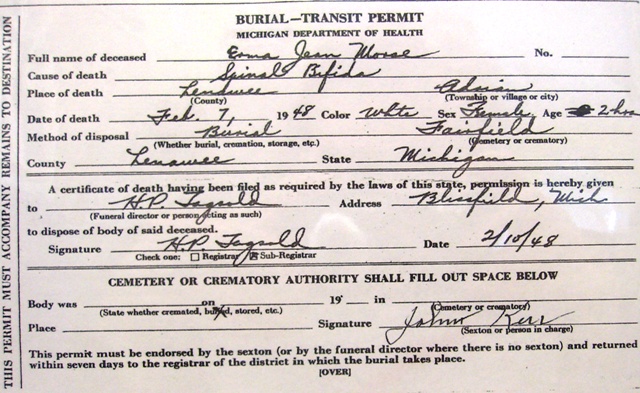 THIS PERMIT MUST ACCOMPANY REMAINS TO DESTINATION
BURIAL—TRANSIT PERMIT
MICHIGAN DEPARTMENT OF HEALTH
Full name of deceased Erma Jean Morse No.
Cause of death Spinal Bifida
Place of death Lenawee Adrian
(County) (Township or village or city)
Date of death Feb. 7, 1948 Color White Sex Female Age 2 hrs
Method of disposal Burial Fairfield
(Whether burial, cremation, storage, etc.) (Cemetery or crematory)
County Lenawee State Michigan
A certificate of death having been filed as required by the laws of this state, permission is hereby given
to H.P. Tagsold Address Blissfield, Mich
(Funeral director or person acting as such)
to dispose of body of said deceased.
Signature H.P. Tagsold Date 2/10/48
Check one: Registrar Sub-Registrar
CEMETERY OR CREMATORY AUTHORITY SHALL FILL OUT SPACE BELOW
Body was on 19 in
(State whether cremated, buried, stored, etc.) (Cemetery or crematory)
Place Signature John Kerr
(Sexton or person in charge)
This permit must be endorsed by the sexton (or by the funeral director where there is no sexton) and returned
within seven days to the registrar of the district in which the burial takes place.
[OVER]